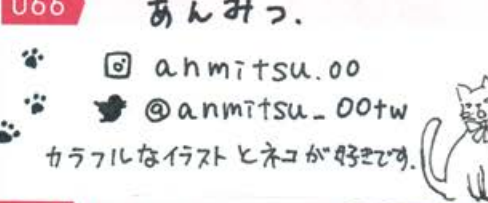 066
あんみつ.
anmitsu.00
@anmitsu_00tw
カラフルなイラストとネコが好きです.